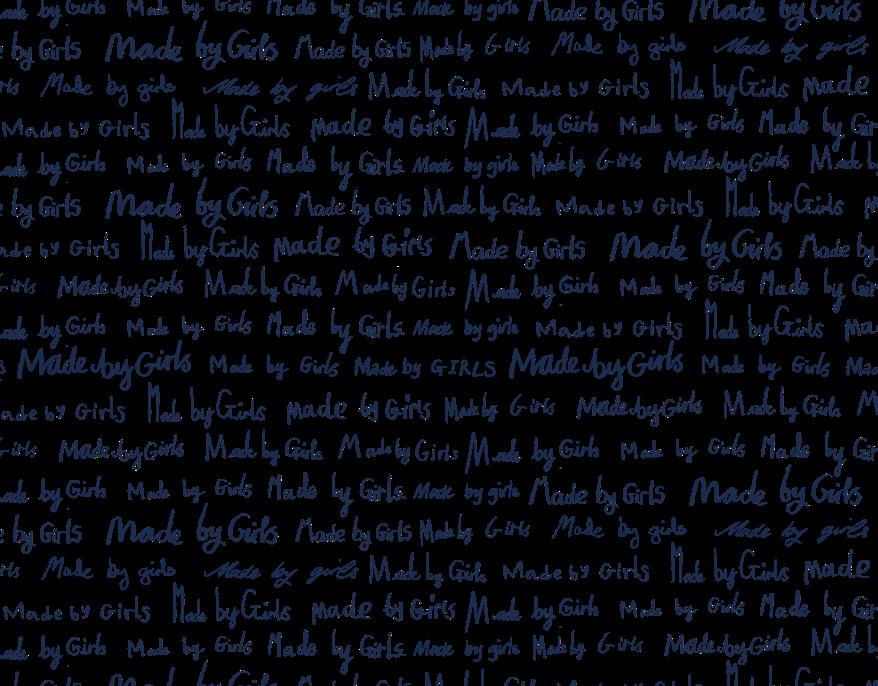 made by Girls Made by Girls Made by Girls Made by girls Made by Girls Made by Girls
by Girls Made by Girls Made by Girls Made by Girls Made by girls Made by girls
Made by girls Made by girls Made by Girls Made by Girls Made by Girls made
Made by Girls Made by Girls made by Girls Made by Girls Made by Girls Made by
by Girls Made by Girls Made by Girls Made by girls Made by Girls Made by Girls Made
by Girls Made by Girls Made by Girls Made by Girls Made by Girls Made by Girls
by Girls Made by Girls made by Girls Made by Girls Made by Girls Made by
Girls Made by Girls Made by Girls Made by Girls Made by Girls Made by Girls Made by
by Girls Made by Girls Made by Girls Made by girls Made by Girls Made by Girls
Made by Girls Made by Girls Made by GIRLS Made by Girls Made by Girls
by Girls Made by Girls made by Girls Made by Girls Made by Girls Made by Girls
Girls Made by Girls Made by Girls Made by Girls Made by Girls Made by Girls Made by
by Girls Made by Girls Made by Girls Made by girls Made by Girls Made by Girls
by Girls Made by Girls Made by Girls Made by Girls Made by girls Made by girls
Made by girls Made by girls Made by Girls Made by Girls Made by Girls made
Made by Girls Made by Girls made by Girls Made by Girls Made by Girls Made by
by Girls Made by Girls Made by Girls Made by girls Made by Girls Made by Girls Made